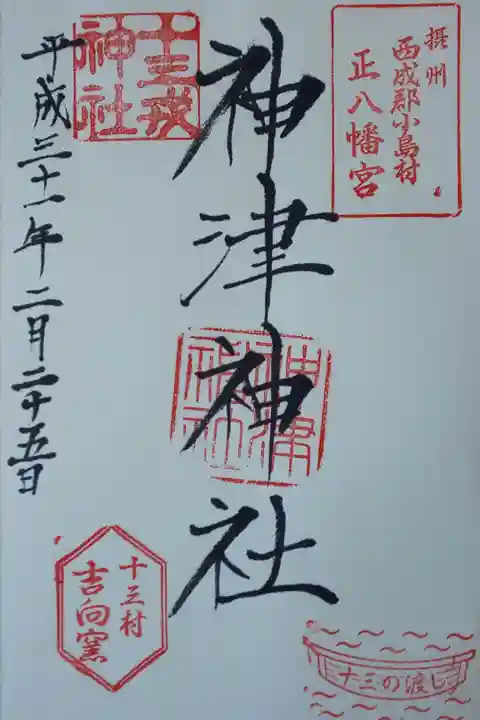 摂州
西成郡小島村
正八幡宮
神津神社
神津神社
十三戎神社
平成三十一年二月二十五日
十三村
吉向窯
十三の渡し